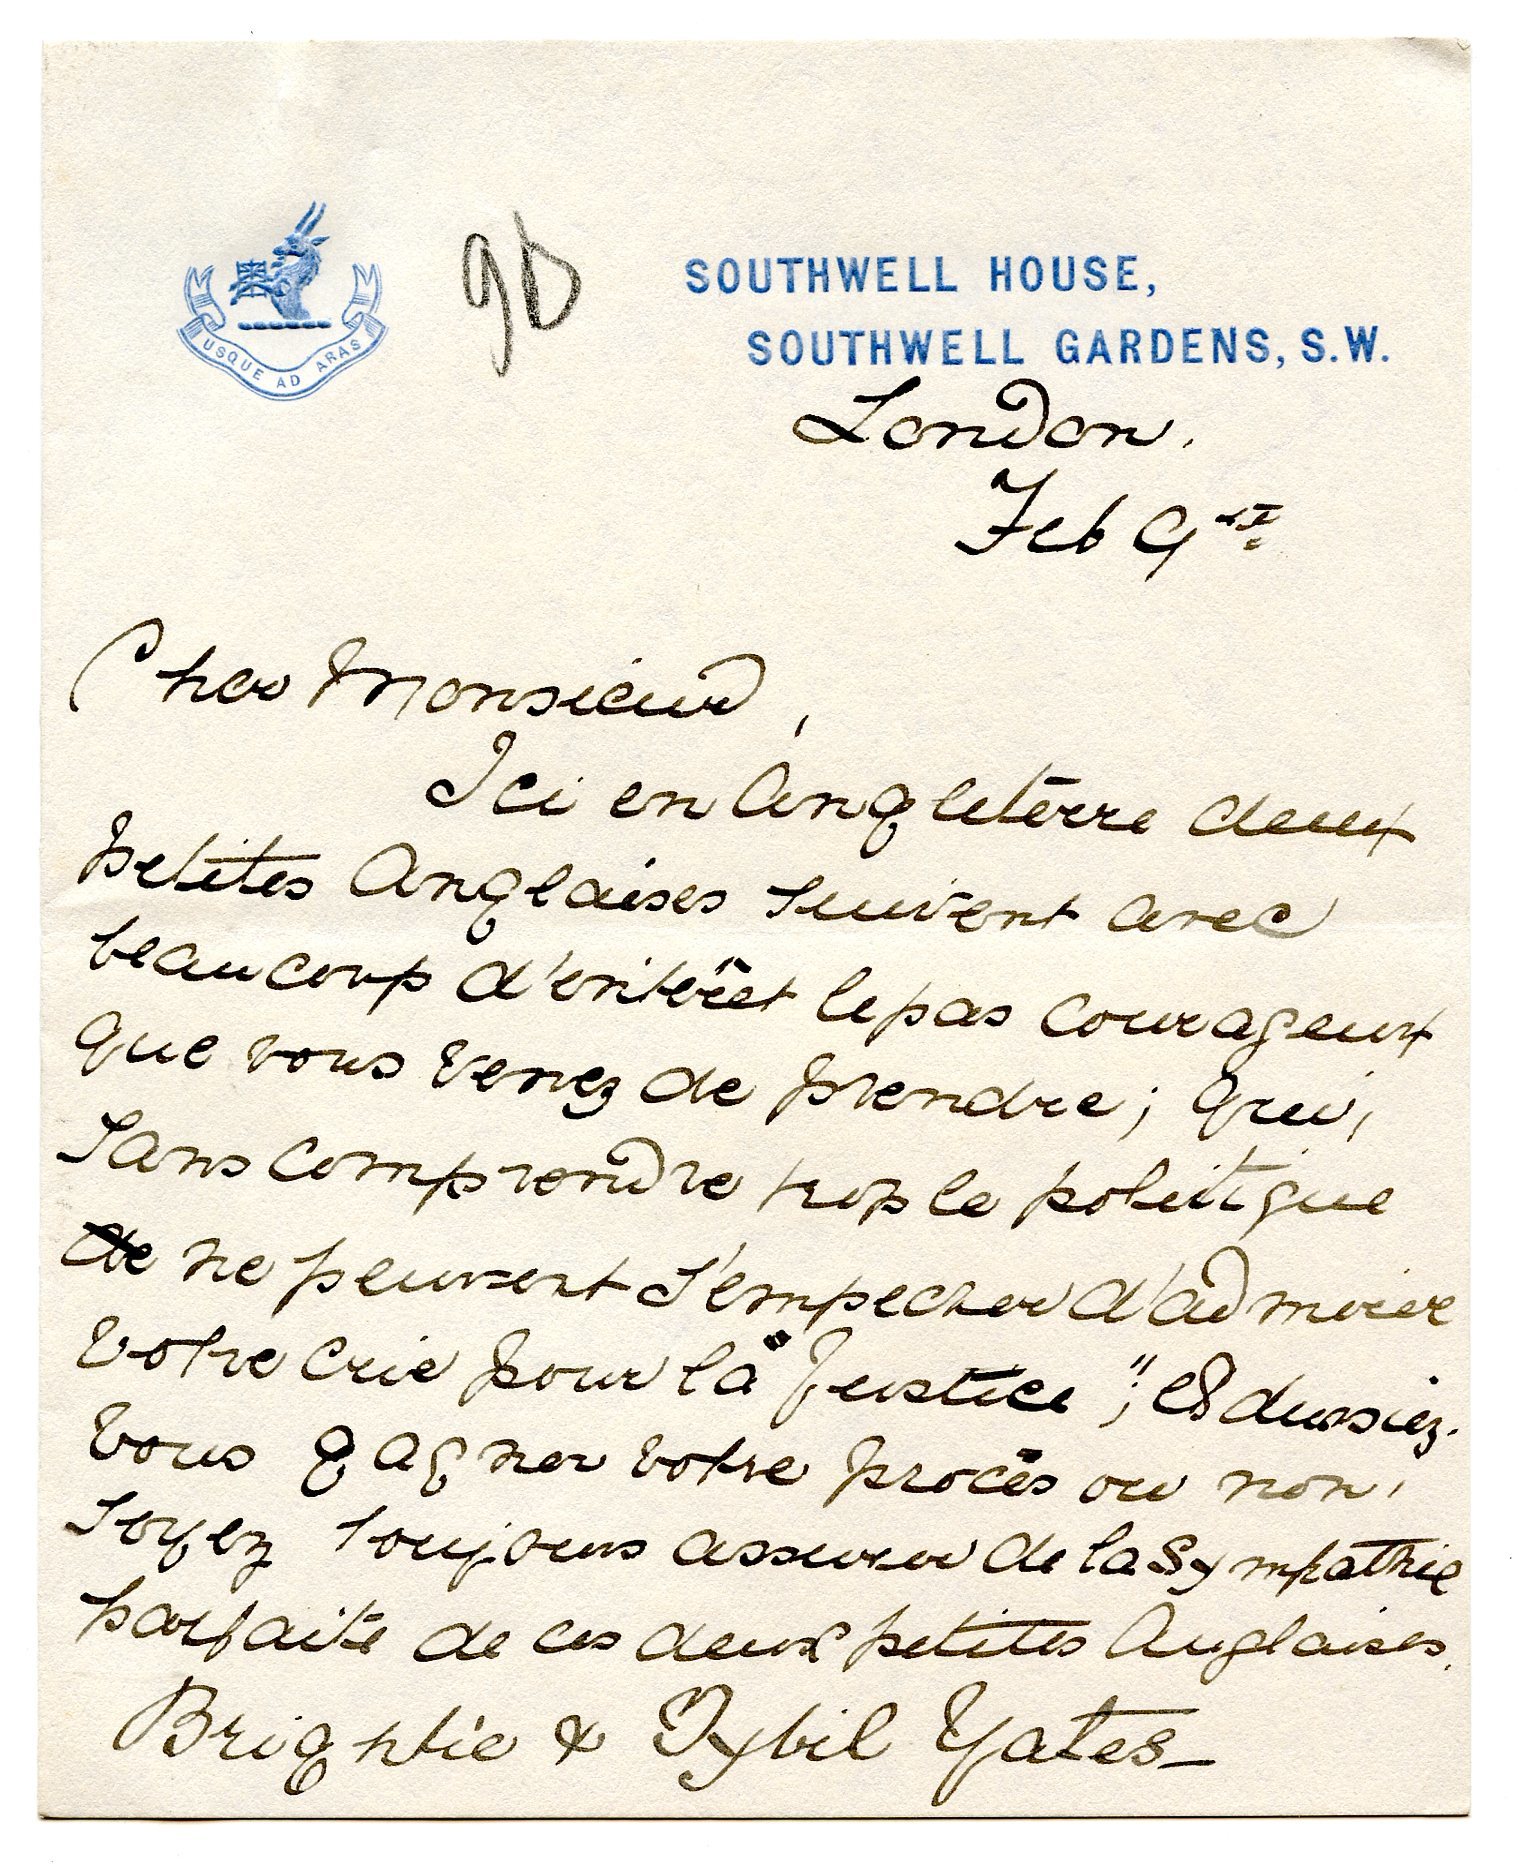 USQUE AD ARAS
9D
SOUTHWELL HOUSE,
SOUTHWELL GARDENS, S.W.
London.
Feb 9
Cher Monsieur,
Ici en Angleterre deux
petites Anglaises suivent avec
beaucoup d'enterêt le pas courageux
que vous venez de prendre; qui,
sans comprendre trop le politique
de ne peuvent s'empecher d'admirer
votre crie pour la "Justice"; et dussiez-
vous gagner votre procès ou non,
soyez toujours assurer de la sympathie
parfaite de ces deux petites Anglaises.
Brightie & Sybil Yates—